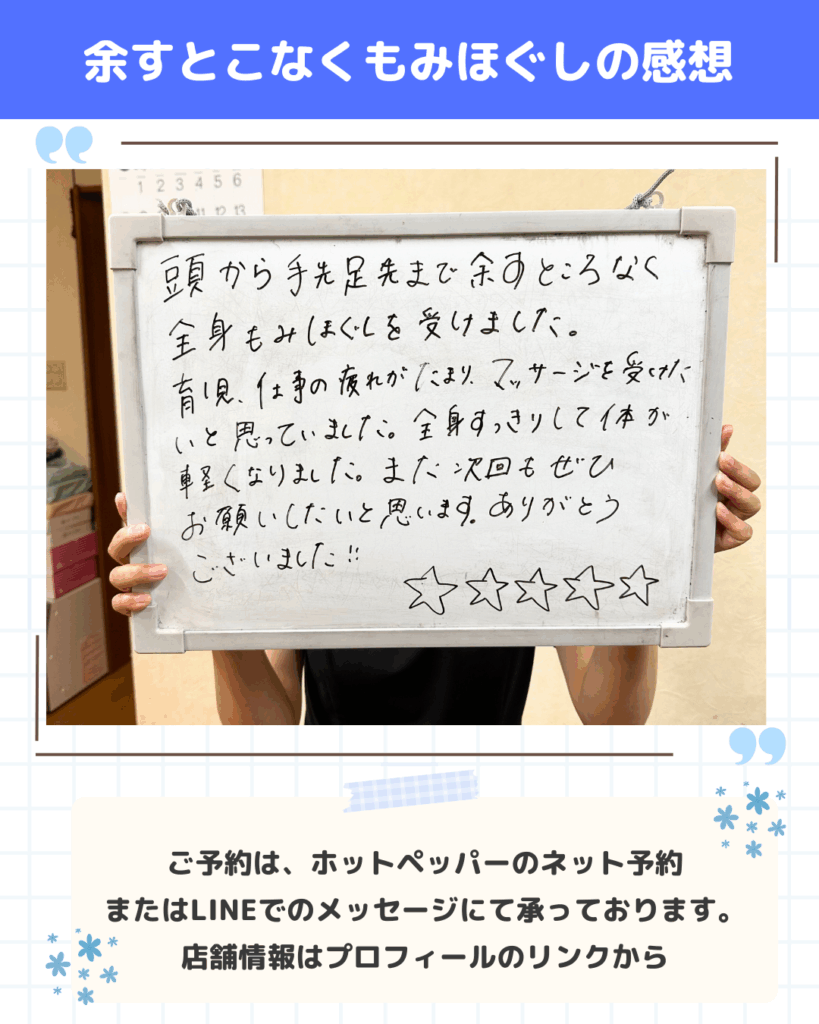 余すとこなくもみほぐしの感想
1 2 3 4 5 6
11 12 13
頭から手先足先まで余すところなく
全身もみほぐしを受けました。
育児、仕事の疲れがたまり、マッサージを受けた
いと思っていました。全身すっきりして体が
軽くなりました。また次回もぜひ
お願いしたいと思います。ありがとう
ございました!!
ご予約は、ホットペッパーのネット予約
またはLINEでのメッセージにて承っております。
店舗情報はプロフィールのリンクから